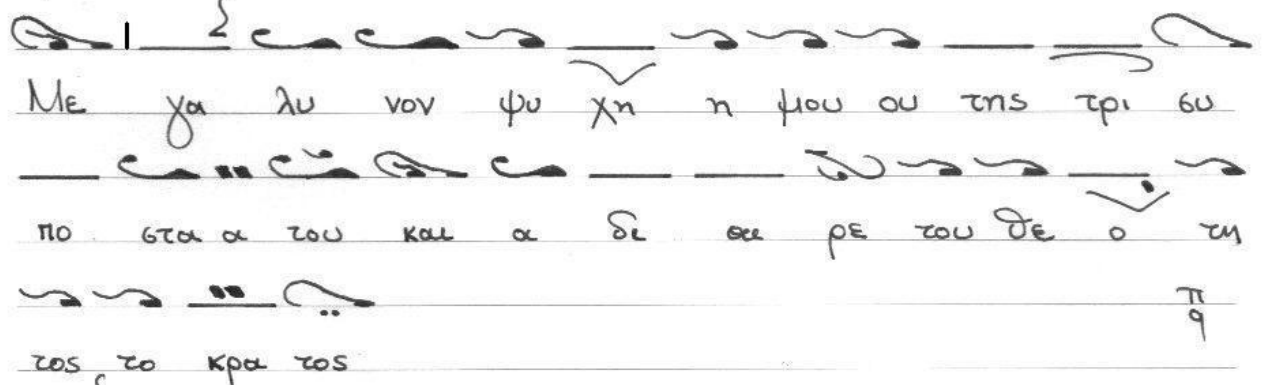 Με γα λυ νον ψυ χη η μου ου της τρι συ
πο στα α του και α δι αι ρε του θε ο τη
π
q
τος το κρα τος